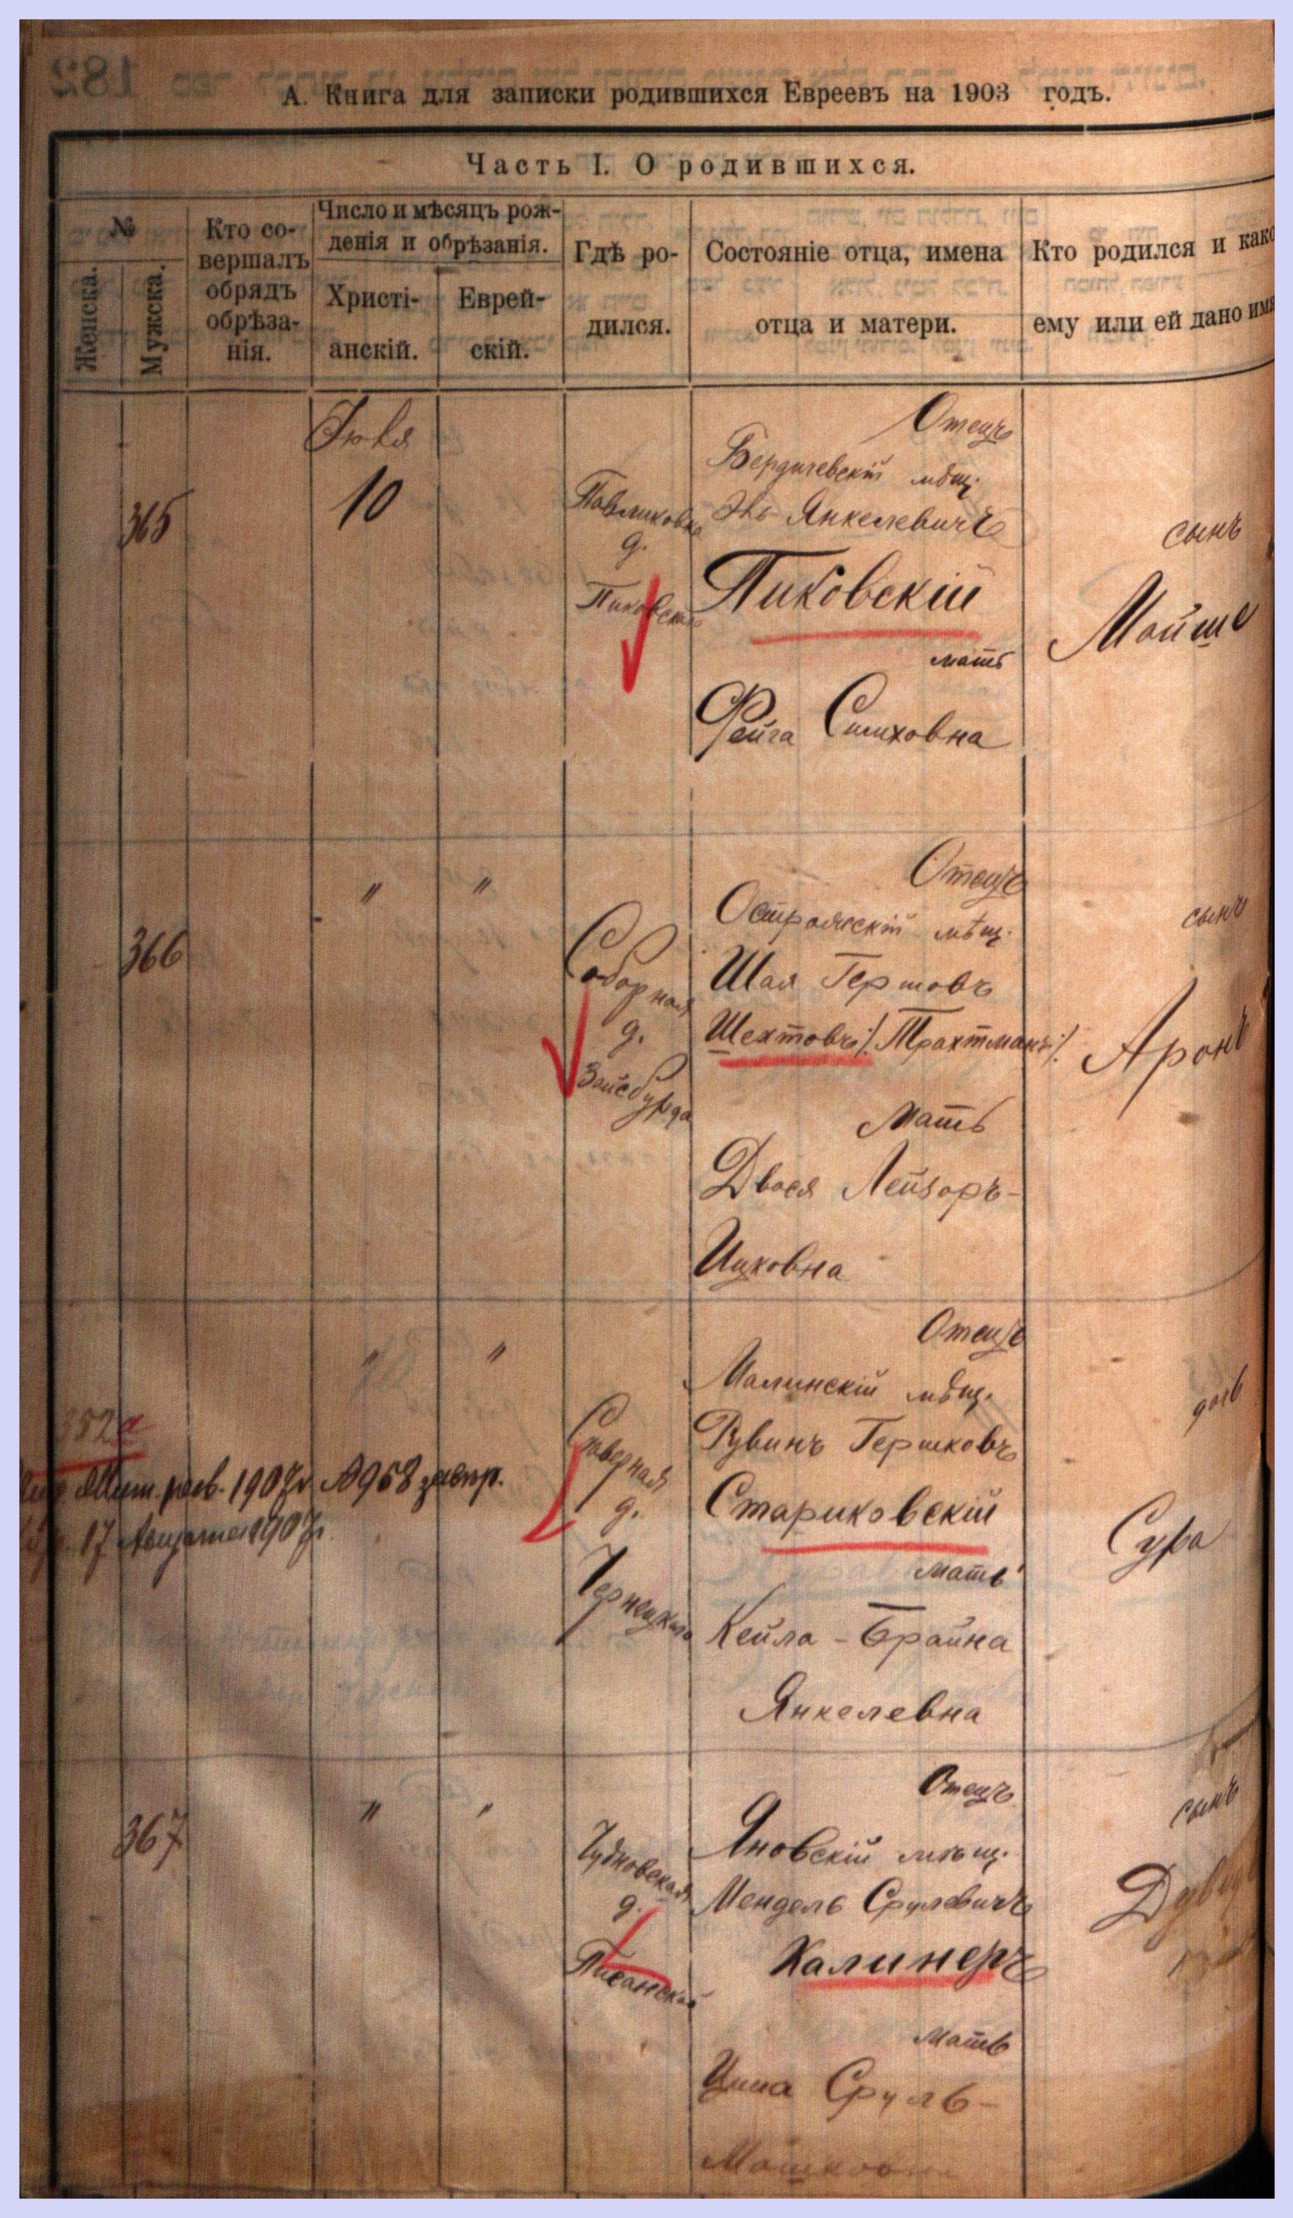 А. Книга для записки родившихся Евреевъ на 1903 годъ.
Часть I. О родившихся.
№
Женска.
Мужска.
Кто со-
вершалъ
обрядъ
обрѣза-
нія.
Число и мѣсяцъ рож-
денія и обрѣзанія.
Христі-
анскій.
Еврей-
скій.
Гдѣ ро-
дился.
Состояніе отца, имена
отца и матери.
Кто родился и како
ему или ей дано имя
365
Іюля
10
Павликовка
д.
Пиковскаго
Отецъ
Бердичевскій мѣщ.
Эль Янкелевичъ
Пиковскій
мать
Фейга Симховна
сынъ
Мойше
366
"
"
Соборная
д.
Вайсбурда
Отецъ
Острожскій мѣщ.
Шая Гершовъ
Шехтовъ /Трахтманъ/
Мать
Двося Лейзоръ-
Ицковна
сынъ
Аронъ
352
"
"
1907 г. №958
17 1907 г.
д.
Чернецкаго
Отецъ
Малинскій мѣщ.
Рувинъ Гершковъ
Стариковскій
мать
Кейла-Брайна
Янкелевна
дочь
Сура
367
"
"
Чудновская
д.
Отецъ
Яновскій мѣщ.
Мендель Срулевичъ
Калинеръ
мать
Сруль-
Мошковна
сынъ